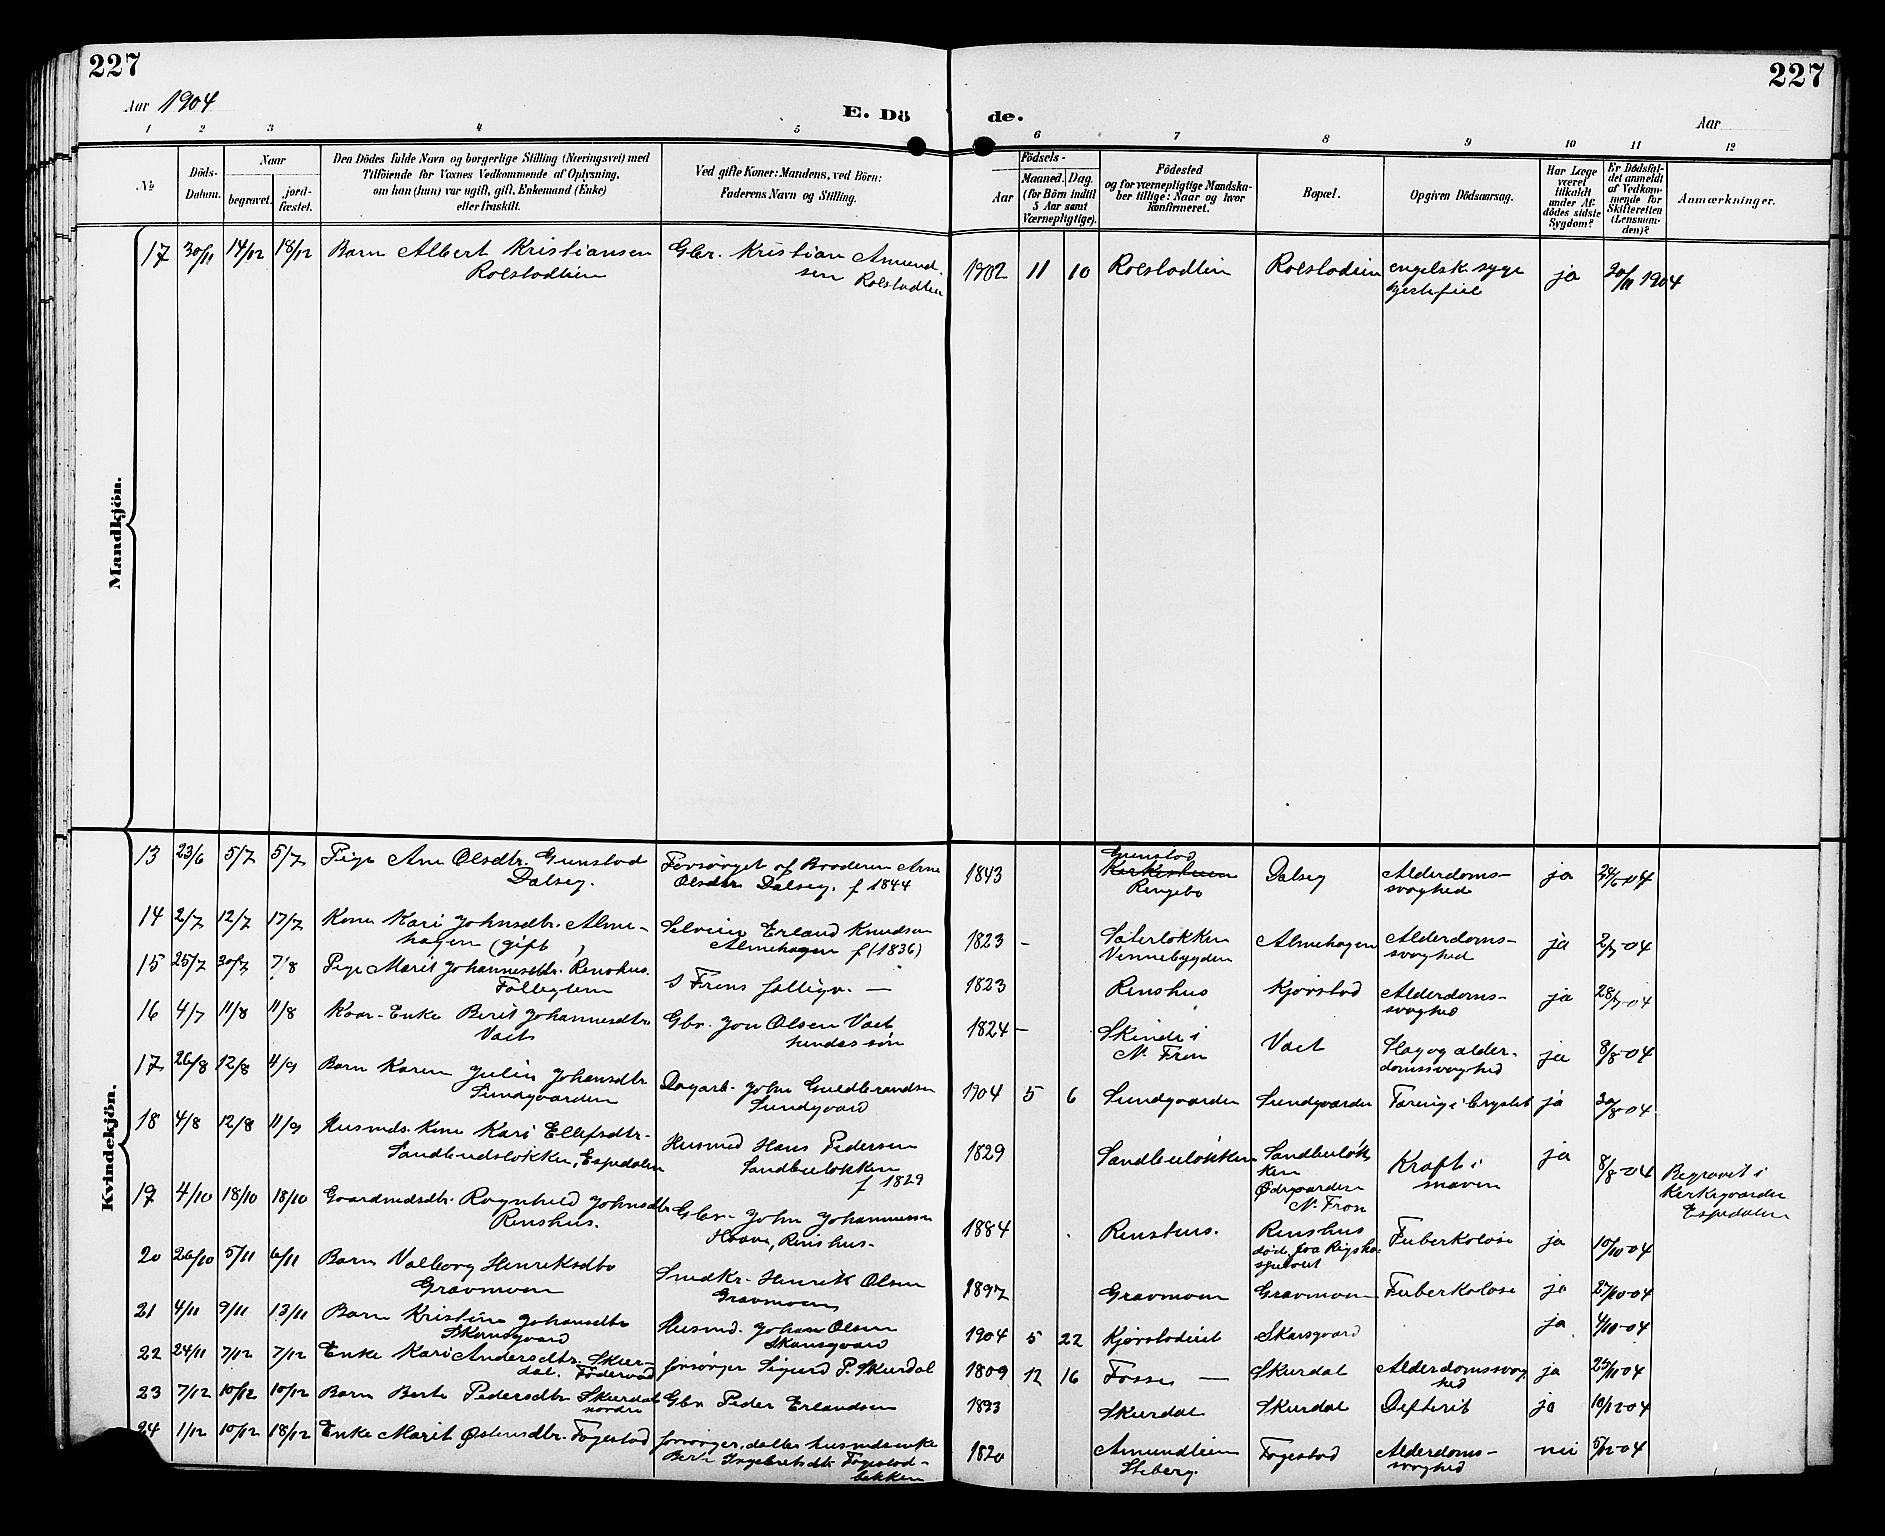 227
227
Aar 1904
E. Dö
de.
Aar
1 2 3 4 5 6 7 8 9 10 11 12
№
Döds-
Datum.
Naar
begravet.
jord-
fæstet.
Den Dödes fulde Navn og borgerlige Stilling (Næringsvei) med
Tilföiende for Voxnes Vedkommende af Oplysning,
om han (hun) var ugift, gift, Enkemand (Enke)
eller fraskilt.
Ved gifte Koner: Mandens, ved Börn:
Faderens Navn og Stilling.
Födsels-
Aar
Maaned.
Dag.
(for Börn indtil
5 Aar samt
Værnepligtige).
Födested
og for værnepligtige Mandska-
ber tillige: Naar og hvor
konfirmeret.
Bopæl.
Opgiven Dödsaarsag.
Har Læge
været
tilkaldt
under Af-
dödes sidste
Sygdom?
Er Dödsfal-
det anmeldt
af Vedkom-
mende for
Skifteretten
(Lensman-
den)?
Anmærkninger.
Mandkjön.
17 30/11 14/12 18/12 Barn Albert Kristiansen
Rolstadlien
Gbr. Kristian Amund-
sen Rolstadlien
1902 11 10 Rolstadlien Rolstadlien engelsk syge
hjertefeil
ja 30/11 1904
Kvindekjön.
13 23/6 5/7 5/7 Pige Ane Olsdtr. Grunstad
Dalseg.
Forsørget af Broderen Arne
Olsdtr Dalseg. f 1844
1843 Grunstad
Ringebo
Dalseg Alderdoms-
svaghed
ja 24/6-04
14 2/7 12/7 17/7 Kone Kari Johnsdtr. Alme-
hagen (gift)
Selveier Erland Knudsen
Almehagen f (1836)
1823 - Sæterløkken
Vennebygden
Almehagen Alderdoms-
svaghed
ja 2/7-04
15 25/7 30/7 7/8 Pige Marit Johannesdtr. Renshus
Fattiglem
S Frons fattigv. —
1823 Renshus Kjørstad Alderdoms-
svaghed
ja 28/7-04
16 4/7 11/8 11/8 Kaar-Enke Berit Johannesdtr
Gbr. Jon Olsen
hendes søn
1824 - Skinde i
N. Fron
Slag og alder-
domssvaghed
ja 8/8-04
17 26/8 12/8 4/9 Barn Karen Julie Johansdtr
Sundgaarden
Dagarb. John Guldbrandsen
Sundgaard
1904 5 6 Sundgaarden Sundgaarden Tæring i brystet ja 30/8-04
18 4/8 12/8 11/9 Husmds. Kone Kari Ellefsdtr-
Sandbuløkken, Espedalen
Husmd Hans Pedersen
Sandbuløkken
f 1829
1829 Sandbuløkken Sandbuløk-
ken
Ødegaarden
N. Fron
Kræft i
maven
ja 8/8-04 Begravet i
Kirkegaarden
Espedalen
19 4/10 18/10 18/10 Gaardmdsdtr. Ragnhild Johnsdtr
Renshus.
Gbr. John Johannessen
Haave, Renshus-
1884 Renshus. Renshus
død fra Rigsho-
spitalet
Tuberkolose ja 10/10-04
20 26/10 5/11 6/11 Barn Valborg Henriksdtr
Gravmoen
Smedkr. Henrik Olsen
Gravmoen
1897 Gravmoen Gravmoen Tuberkolose ja 27/10-04
21 4/11 9/11 13/11 Barn Kristine Johansdtr
Skansgaard
Husmd. Johan Olsen
Skansgaard
1904 5 22 Kjørstadeiet Skansgaard ja
22 24/11 7/12 7/12 Enke Kari Andersdtr. Skur-
dal. Føderaad
forsørger Sigurd P. Skurdal
1809 12 16 Fosse — Skurdal Alderdomssvag-
hed
ja 25/11 04
23 7/12 10/12 10/12 Barn Berte Pedersdtr. Skurdal
nordre
Gbr Peder Erlandsen
1893 Skurdal Skurdal Defterit ja 10/12 04
24 1/12 10/12 18/12 Enke Marit Østensdtr. Fogestad
forsørger, datter husmdsenke
Berit Ingebretsdtr. Fogestad-
bakken
1820 Amundlien
Steberg.
Fogestad Alderdoms-
svaghed
nei 5/12-04